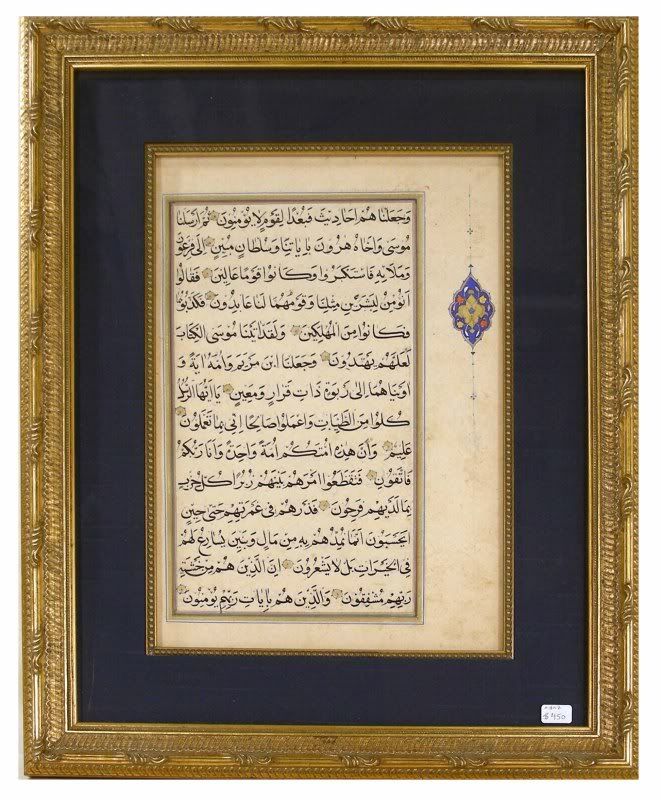 وَجَعَلْنَاهُمْ اَحَادِيثَ فَبُعْدًا لِقَوْمٍ لَا يُؤْمِنُونَ ثُمَّ اَرْسَلْنَا
مُوسَى وَاَخَاهُ هٰرُونَ بِاٰيَاتِنَا وَسُلْطَانٍ مُبِينٍ اِلَى فِرْعَوْنَ
وَمَلَائِهِ فَاسْتَكْبَرُوا وَكَانُوا قَوْمًا عَالِينَ فَقَالُوا
اَنُؤْمِنُ لِبَشَرَيْنِ مِثْلِنَا وَقَوْمُهُمَا لَنَا عَابِدُونَ فَكَذَّبُوهُمَا
فَكَانُوا مِنَ الْمُهْلَكِينَ وَلَقَدْ اٰتَيْنَا مُوسَى الْكِتَابَ
لَعَلَّهُمْ يَهْتَدُونَ وَجَعَلْنَا ابْنَ مَرْيَمَ وَاُمَّهُ اٰيَةً وَ
اٰوَيْنَاهُمَا اِلَى رَبْوَةٍ ذَاتِ قَرَارٍ وَمَعِينٍ يَا اَيُّهَا الرُّسُلُ
كُلُوا مِنَ الطَّيِّبَاتِ وَاعْمَلُوا صَالِحًا اِنِّي بِمَا تَعْمَلُونَ
عَلِيمٌ وَاَنَّ هٰذِهِ اُمَّتُكُمْ اُمَّةً وَاحِدَةً وَاَنَا رَبُّكُمْ
فَاتَّقُونِ فَتَقَطَّعُوا اَمْرَهُمْ بَيْنَهُمْ زُبُرًا كُلُّ حِزْبٍ
بِمَا لَدَيْهِمْ فَرِحُونَ فَذَرْهُمْ فِي غَمْرَتِهِمْ حَتَّى حِينٍ
اَيَحْسَبُونَ اَنَّمَا نُمِدُّهُمْ بِهِ مِنْ مَالٍ وَبَنِينَ نُسَارِعُ لَهُمْ
فِي الْخَيْرَاتِ بَلْ لَا يَشْعُرُونَ اِنَّ الَّذِينَ هُمْ مِنْ خَشْيَةِ
رَبِّهِمْ مُشْفِقُونَ وَالَّذِينَ هُمْ بِاٰيَاتِ رَبِّهِمْ يُؤْمِنُونَ
$450